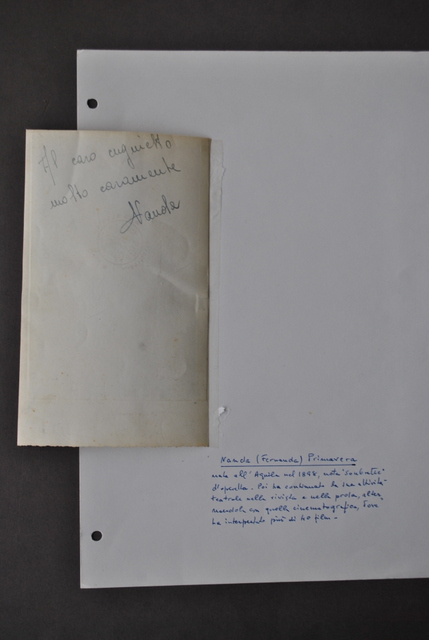 Al caro cuginetto
molto caramente
Nanda
Nanda (Fernanda) Primavera
nata all'Aquila nel 1898, nota "soubrette"
d'operetta. Poi ha continuato la sua attività
teatrale nella rivista e nella prosa, alter
nandola con quella cinematografica, dove
ha interpretato più di 40 film.